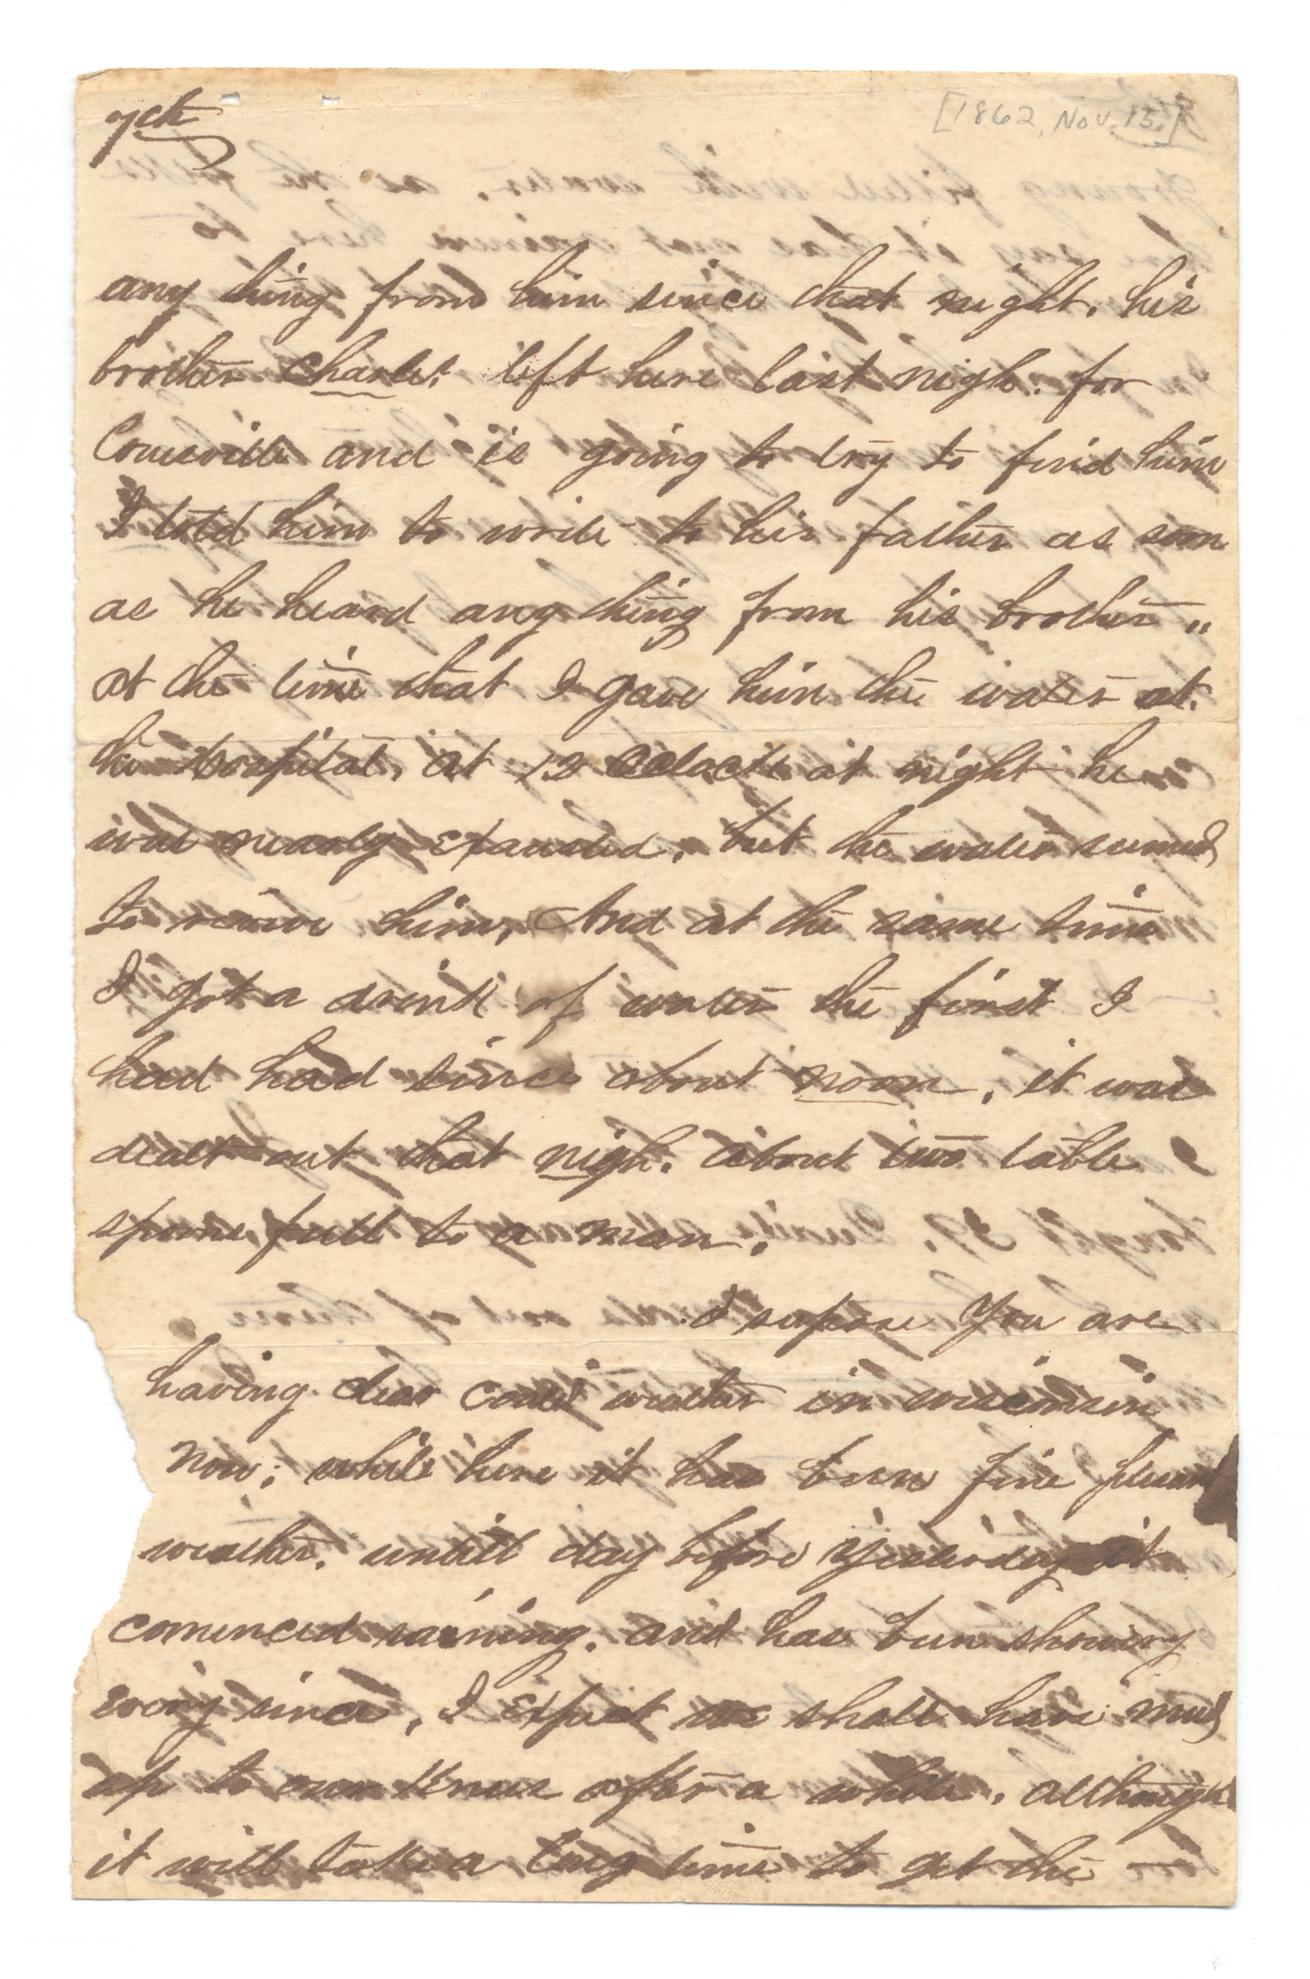 7th
[1862, Nov. 13.]
any thing from him since that night. his
brother Charles left here last nigh. for
Louisville and is going to try to find him
I told him to write to his father as soon
as he heard any thing from his brother "
at the time that I gave him the water at.
the hospital, at 12 oclock at night he
was nearly exausted, but the water seemed
to revive him, And at the same time
I got a drink of water the first I
had had since about noon, it was
dealt out that nigh. about two table
spoons full to a man.
I supose You are
having clear could weather in wisconsin
now; while here it has been fine pleasan
weather. untill day before yesterday it
comenced raining. and has been showery
every since, I Expect we shall have mud
up to our knees after a while, although
it will take a long time to get the